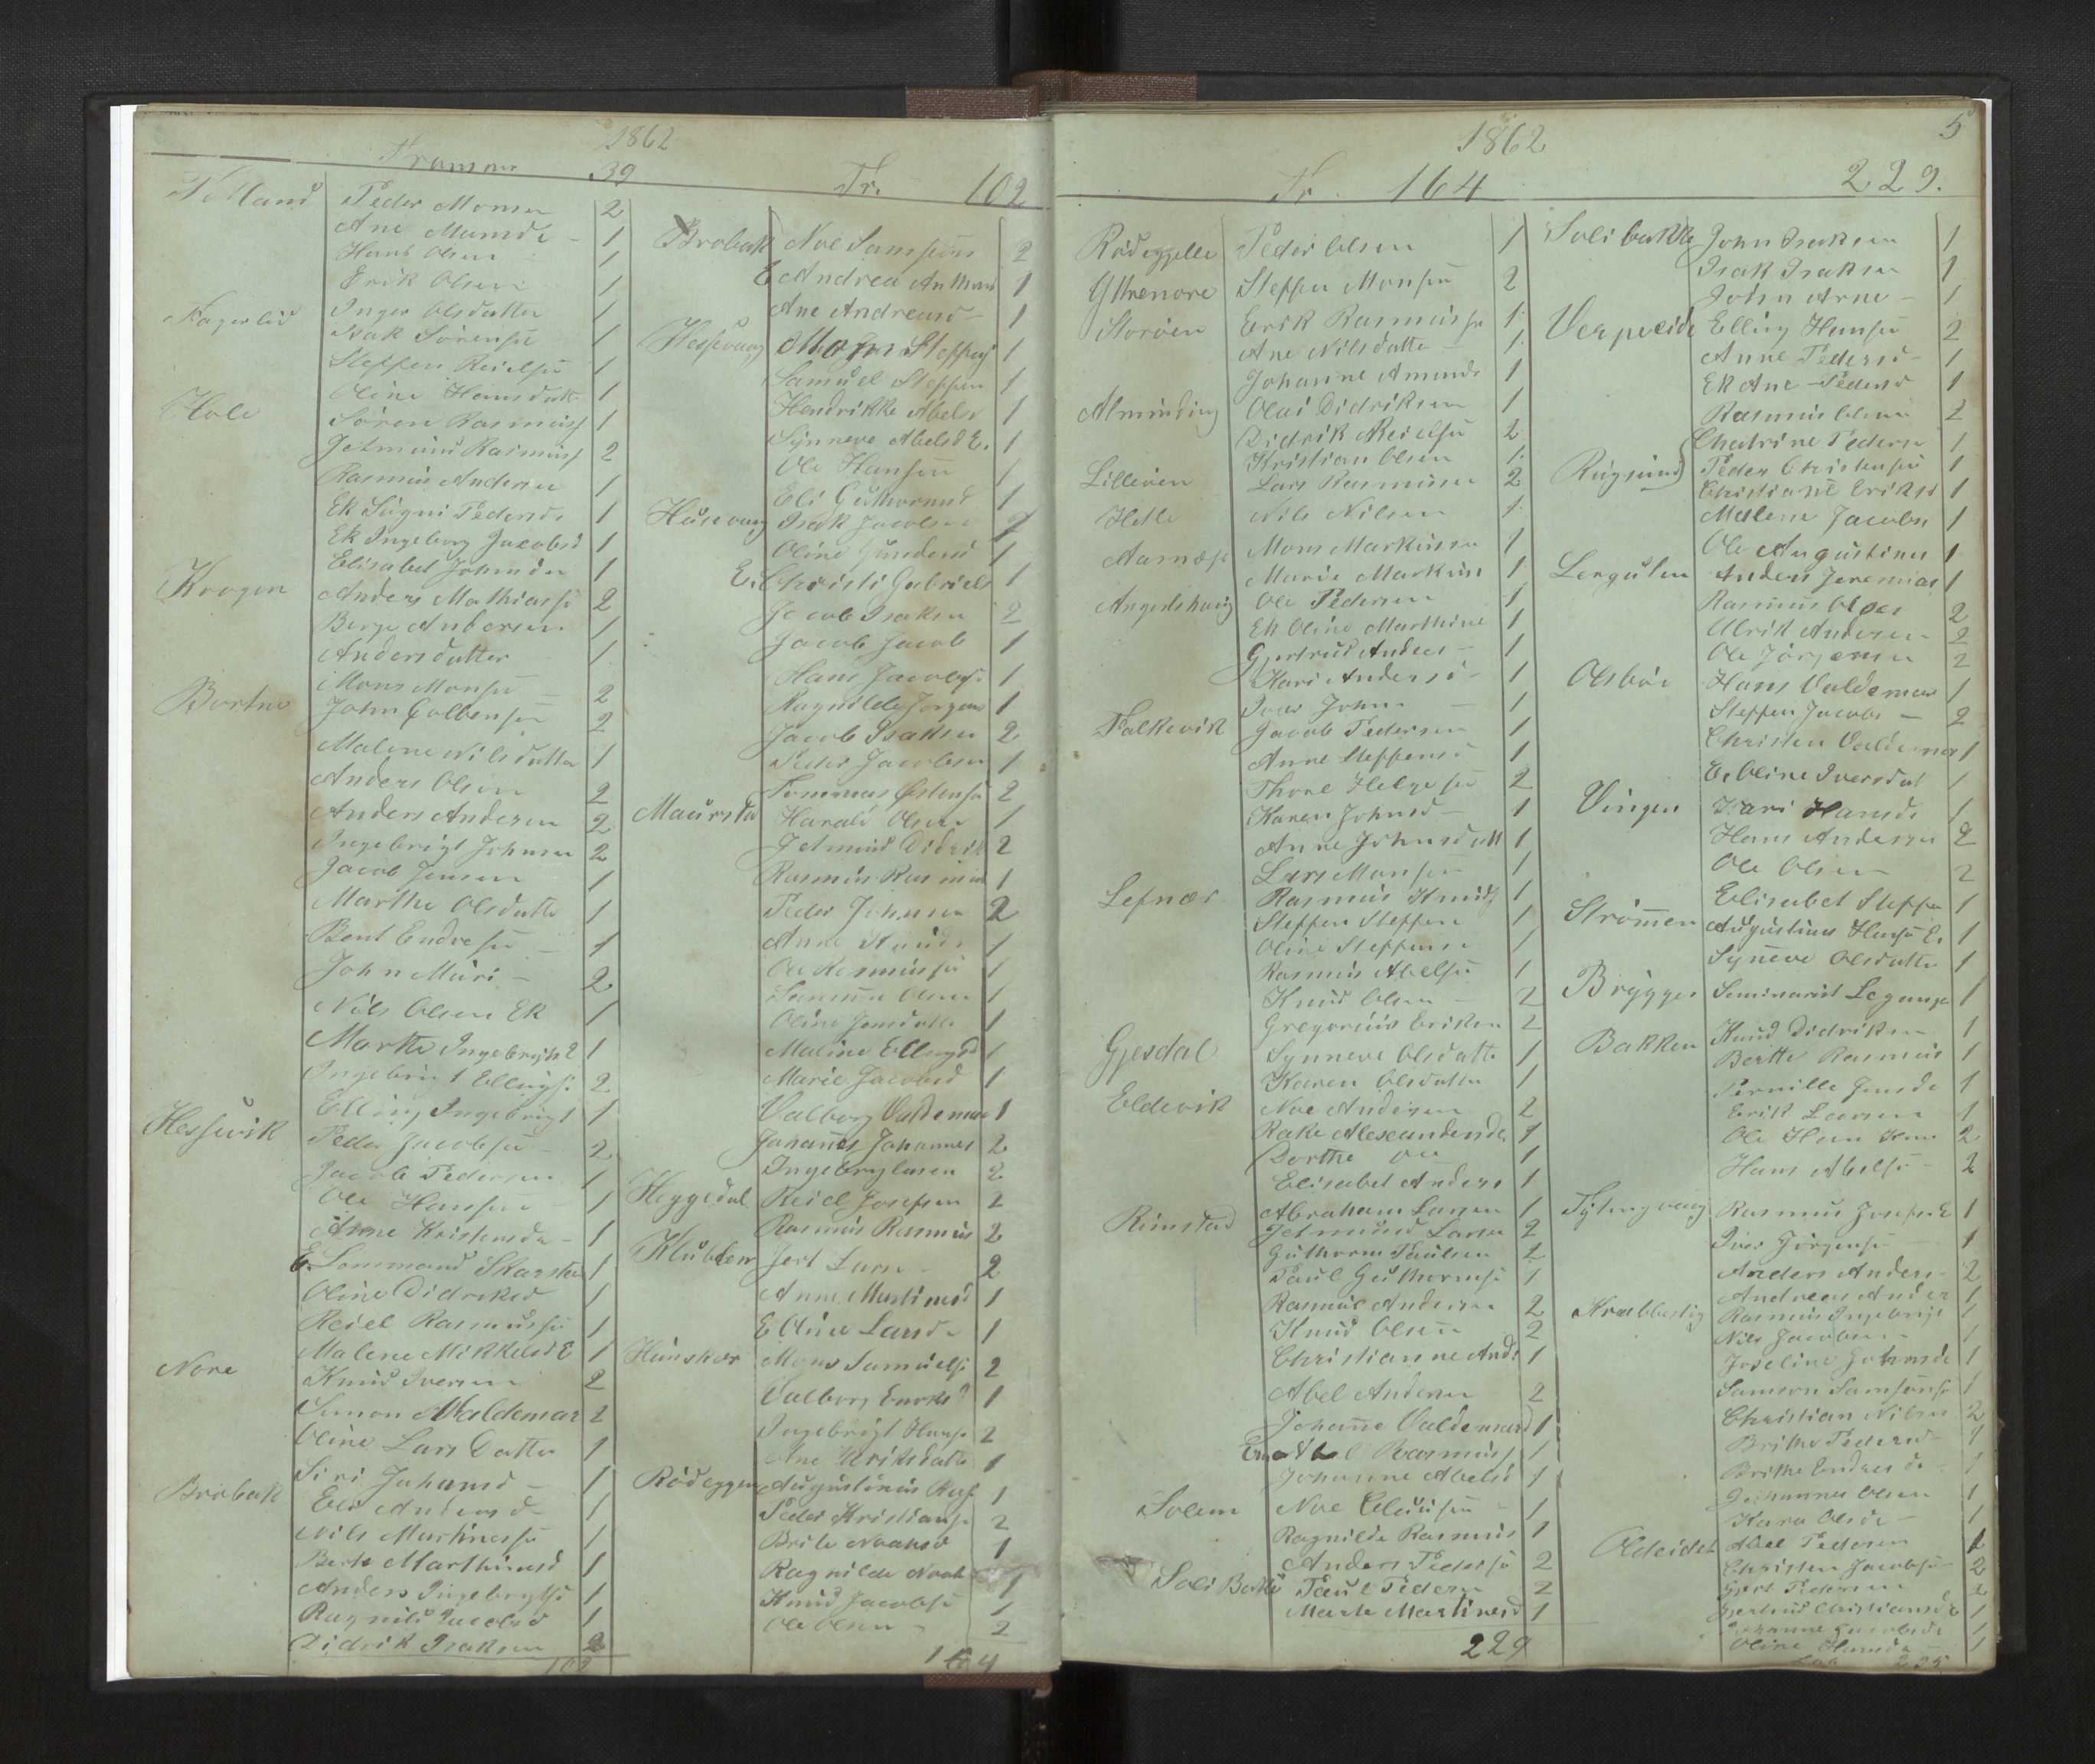 1862
39
Peder Monsen 2
Ane Monsdt - 1
Hans Olsen 1
Erik Olsen 1
Fagerlid Inger Olsdatter 1
Isak Sörensen 1
Steffen Reielsen 1
Hole Oline Hansdatt 1
Sören Rasmuss 1
Jetmund Rasmuss 2
Rasmus Andersen 1
Ek Signi Pedersd 1
Ek Ingeborg Jacobsd 1
Elisabet Johnsda 1
Krogen Anders Mathiassen 2
Berge Andersen 1
Andersdatter 1
Bortne Mons Monsen - 2
John 2
Malene Nilsdatter 1
Anders Olsen 2
Anders Andersen 2
Ingebrigt Johnsen 2
Jacob Jensen 1
Marthe Olsdatte 1
Bent Endresen - 1
John Muri - 2
Nils Olsen Ek 1
Marthe Ingebrigts d 1
Ingebrigt Ellings: 2
Elling Ingebrigt 1
Hessevik Peder Jacobsen 2
Jacob Pedersen 1
Ole Hansen - 1
Anne Kristensda - 1
E. Karsten 1
Oline Didriksd 1
Reiel Rasmussen 1
Malene Mikkelsd E 1
Nore Knud Iversen 2
Simon Waldemar 2
Oline Lars Datter 1
Siri Johansd - 1
Brobak Eli Andersd 1
Nils Martinessen 1
Berte Marthinusd 1
Anders Ingebrigts 1
Ragnild Jacobsd 1
Didrik Isaksen 2
102
Tr. 102
Brobak Noe Samsons 2
E Andrea 1
Ane Andreasd - 1
Hessevaag Steffens 1
Samuel Steffen 1
Hendrikke Abels 1
Synneve Abelsd E. 1
Ole Hansen 1
Eli Guthormsd 1
Husevaag Isak Jacobsen 2
Oline Gundersd 1
E. Christi Gabriels 1
Jacob Isaksen 2
Jacob Jacob 1
Hans Jacobs 1
Ragnilde Jörgens 1
Jacob Isaksen 2
Peder Jacobsen 1
Tommas Östensen 2
Maurstad Harald Olsen 1
Jetmund Didrik 2
Rasmus Rasmus 1
Peder Johnsen 2
Anne Knuds 1
Ole Rasmussen 1
Olsen 1
Oline Jonsdatte 1
Maline Ellingsd 1
Marie Jacobsd 1
Valborg Valdemar 1
Johanes Johannes 2
Ingebrigt 2
Heggedal Reiel Josefsen 2
Rasmus Rasmus 2
Klubben Jert Larsn - 2
Anne Martinesd 1
E Oline Larsda 1
Hunskaar Mons Samuels: 2
Valborg Enoksd 1
Ingebrigt Hans 2
Ane Ulriksdatter 1
Rödeggen Augustinus Rasm. 1
Peder Kristians 2
Brite Noaksd 1
Ragnilde Noak 1
Knud Jacobsen 1
Ole Olsen - 2
164
1862
Tr 164
Peder Olsen 1
Yttrenore Steffen Monsen 2
Storöen Erik Rasmussen 1.
Ane Nilsdatte - 1.
Johanne Amunds 1
Alminding Olai Didriksen 1
Didrik Reielsen 2
Kristian Olsen 1.
Lilleöen Lars Rasmusen 2
Hille Nils Nilsen 1.
Aarnæs Mons Markusen 1
Marie Markus 1
Angelshaug Ole Pedersen 1
Ek Oline Marthine 1
Gjertrud Anders - 1
Kari Andersd - 1
Iver Johns - 1
Falkevik Jacob Pedersen 1
Anne Steffensd 1
Thore Helgesen 2
Karen Johnsd - 1
Anne Johnsdatt 1
Lars Monsen 1
Lefnæs Rasmus Knuds 1
Steffen Steffen 1
Oline Steffensd 1
Rasmus Abelsen 1
Knud Olsen - 2
Gregorius Eriksen 2
Gjesdal Synneve Olsdatte 1
Karen Olsdatter 1
Eldevik Noe Andersen 2
Rake Alexandersda 1
Dorthe Ole 1
Elisabet Anders 1
Rimstad Abraham Larsen 1
Jetmund Larsen 2
Guthorm Paulsen 2
Paul Guthorms 1
Rasmus Andersen 2
Knud Olsen 2
Christianne Ands 1
Abel Andersen 2
Johanne Valdemarsd 1
Rasmuss 1
Johanne Abelsd 1
Solem Noe Clausen - 1
Ragnilde Rasmus 1
Anders Pedersen 2
Soli Bakke Paul Pedersen 2
Marte Martinesd 1
229
5
229.
Solibakke John Isaksen 1
Isak Isaksen 1
John Arne - 1
Verpeide Elling Hansen 2
Anne Pedersd - 1
Ek Ane Pedersd 1
Rasmus Olsen 2
Chatrine Peders 1
Rugsund Peder Christensen 1
Christiane Eriksd 1
Malene Jacobs 1
Ole Augustinus 1
Lergulen Anders Jeremias 1
Rasmus 2
Ulrik Andersen - 2
Ole Jörgensen 2
Olsböe Hans Valdemar 1
Steffen Jacobs - 2
Christen Valdemar 1
E. Oline Iversdat 1
Vingen Kari Hansd 1
Hans Andersen 2
Ole Olsen - 2
Elisabet Steffen 1
Strömmen Augustinus Hansen E. 1
Synneve Olsdatter 1
Bryggen Seminarist Leganger 1
Bakken Knud Didriksen 1
Berthe Rasmus 1
Pernille Jensda 1
Erik Larsen 1
Ole Hans 2
Hans Abelsen - 2
Rasmus Josefs E 1
Iver Jörgensen 1
Anders Anders - 2
Andreas Anders 1
Rasmus Ingebrigt 1
Nils Jacobsen 1
Joseline Johnsda 1
Samson Samsons 1
Christian Nilsen 2
Brithe Pedersd - 1
Brithe Endresda - 1
Johannes Olsen 1
Kara Olsda - 1
Oldeidet Abel Pedersen 1
Christen Jacobsen - 2
Gert Pedersen 2
Gjertrud Christiansda 1
Johanne Jacobsda 1
Oline Hansda - 1